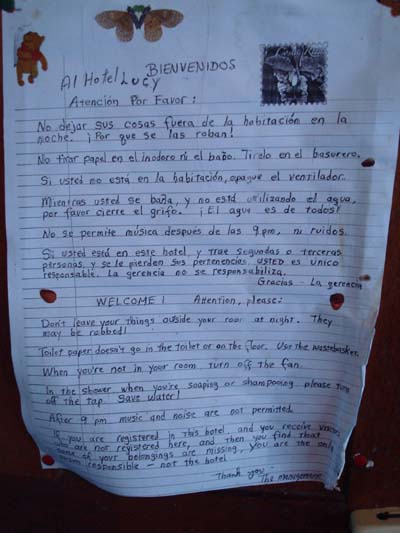 BIENVENIDOS
Al Hotel Lucy
Atención Por Favor:
No dejar sus cosas fuera de la habitación en la
noche. ¡Por que se las roban!
No tirar papel en el inodoro ni el baño. Tirelo en el basurero.
Si usted no está en la habitación, apague el ventilador.
Mientras usted se baña, y no está utilizando el agua,
por favor cierre el grifo. ¡El agua es de todos!
No se permite música después de las 9 pm, ni ruidos.
Si usted está en este hotel, y trae segundas o terceras
personas, y se le pierden sus pertenencias, usted es único
responsable. La gerencia no se responsabiliza.
Gracias - La gerencia
WELCOME! Attention, please:
Don't leave your things outside your room at night. They
may be robbed!
Toilet paper doesn't go in the toilet or on the floor. Use the wastebasket.
When you're not in your room turn off the fan.
In the shower when you're soaping or shampooing please turn
off the tap. Save water!
After 9 pm music and noise are not permitted.
If you are registered in this hotel, and you receive visitors
who are not registered here, and then you find that
some of your belongings are missing, you are the only
person responsible - not the hotel
Thank you
The management